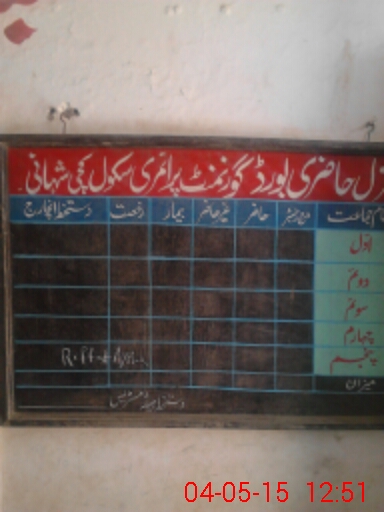 زل حاضری بورڈ گورنمنٹ پرائمری سکول کچی شہانی
جماعت حاضر غیر حاضر بیمار رخصت دستخط انچارج
اوّل
دوئم
سوئم
چہارم
پنجم
میزان
دستخط
04-05-15 12:51